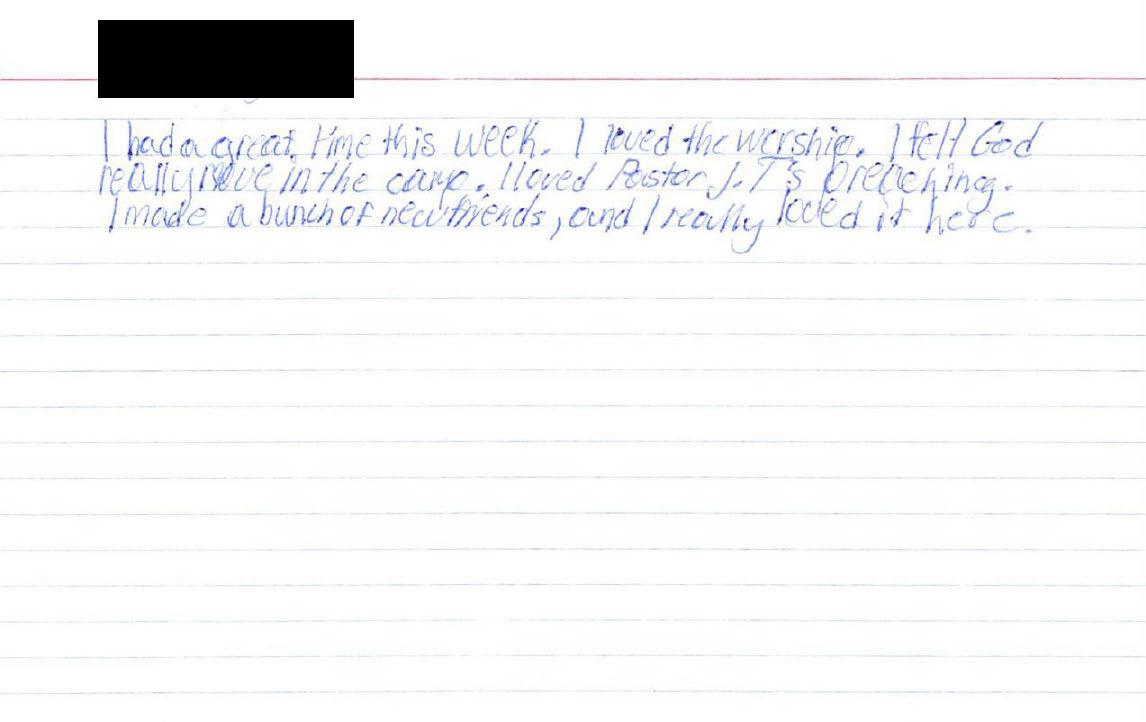 I had a great time this week. I loved the worship. I felt God
really move in the camp. I loved Pastor J.T's preaching.
I made a bunch of new friends, and I really loved it here.